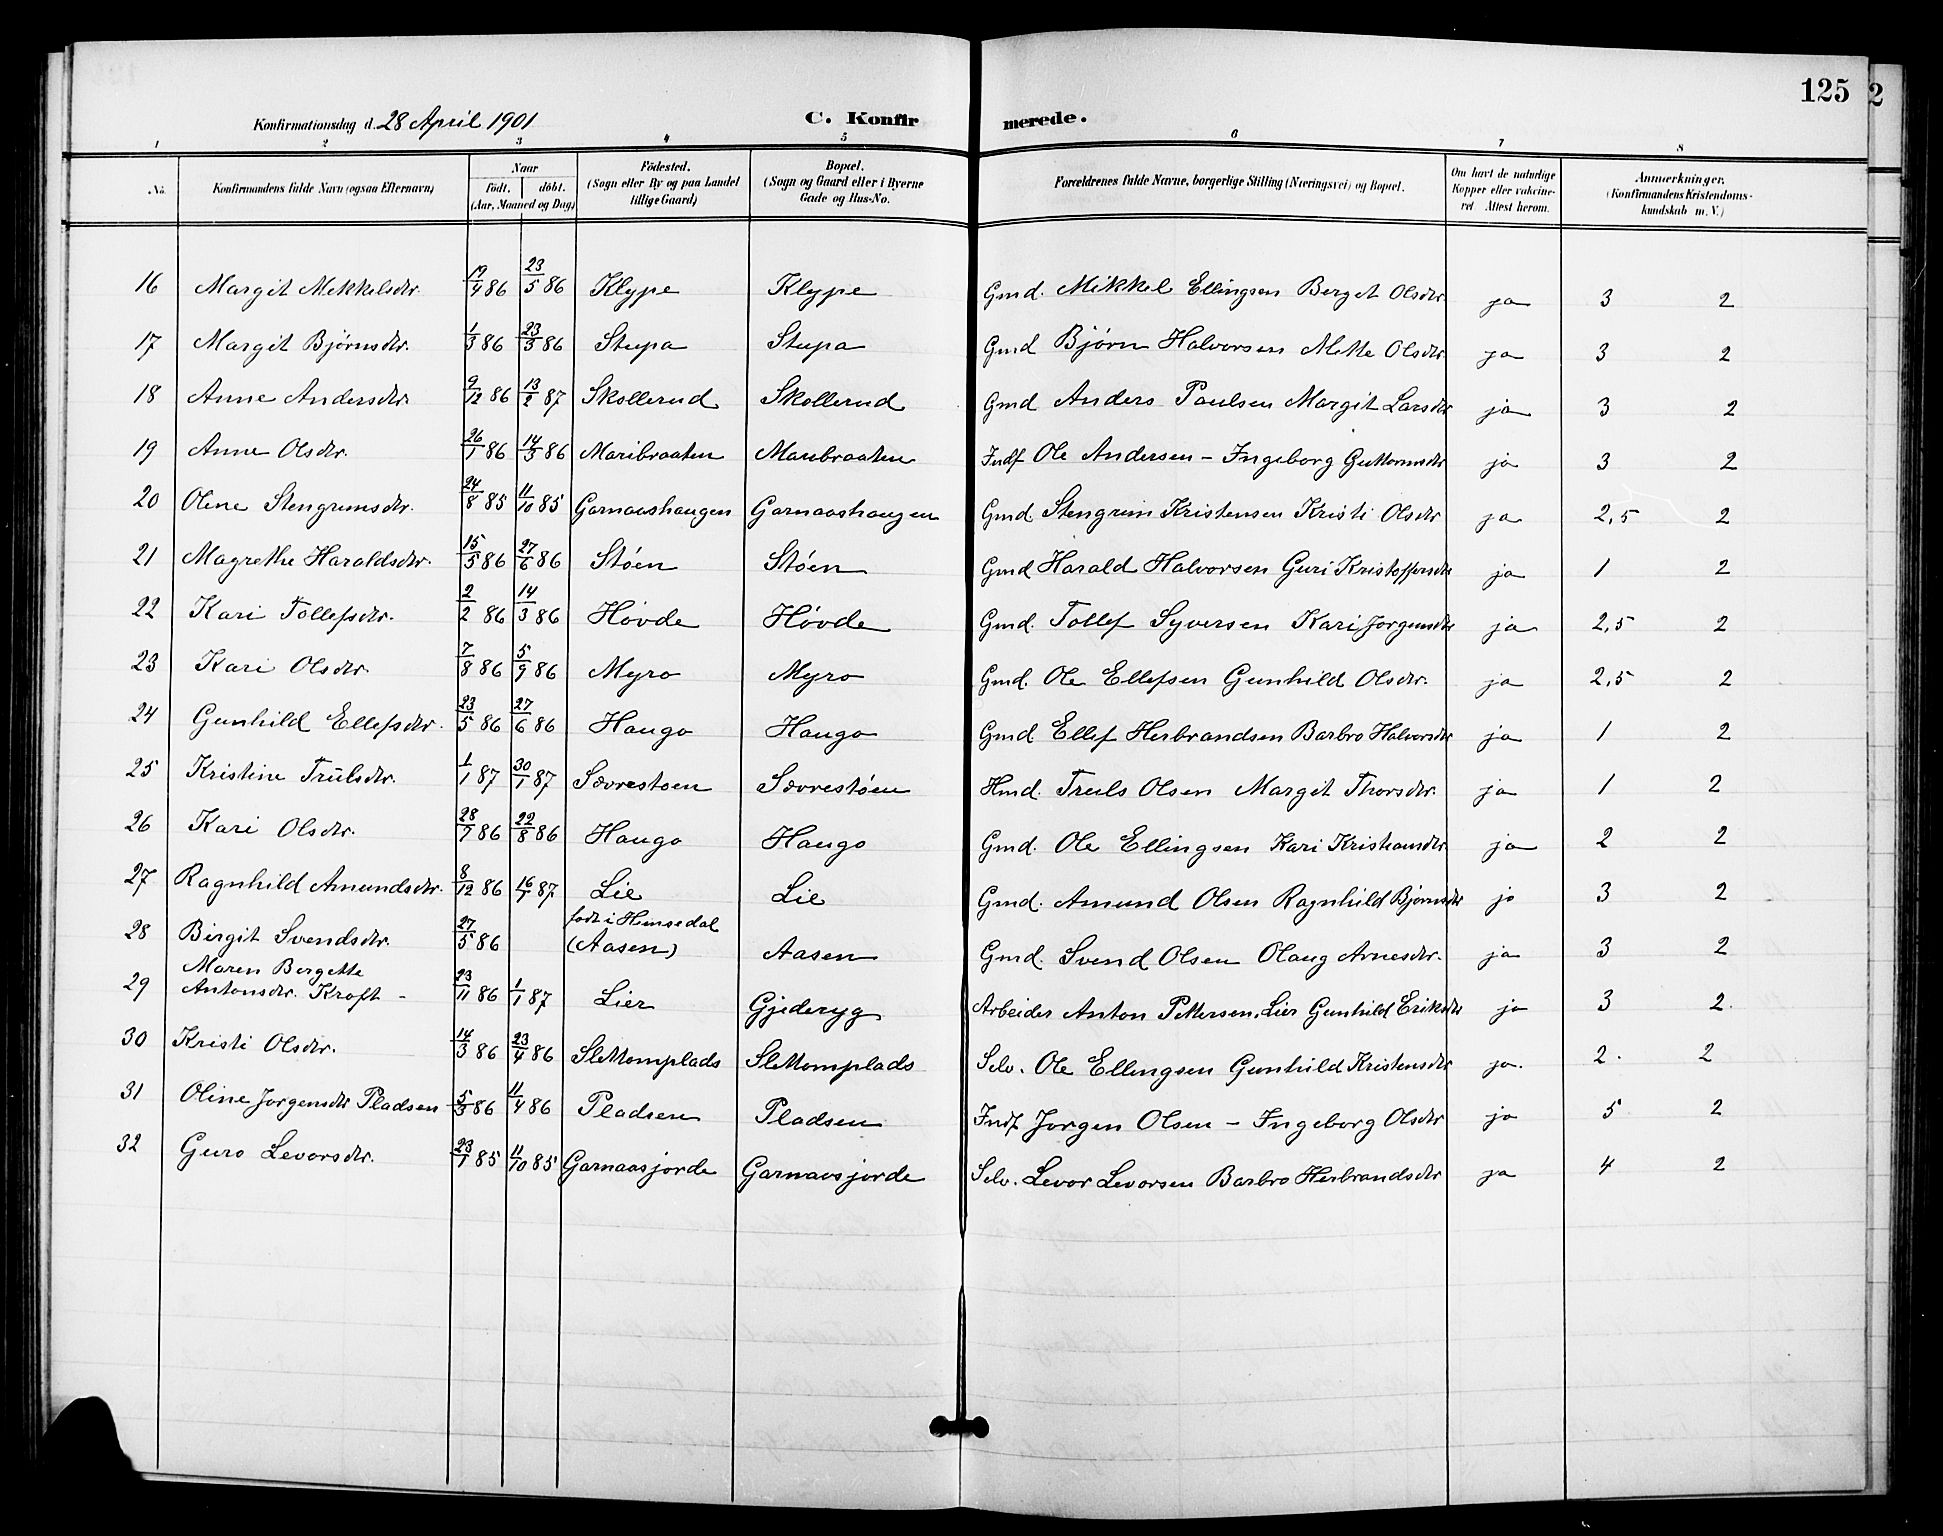 125
2
Konfirmationsdag d. 28 April 1901 C. Konfirmerede.
1 2 3 4 5 6 7 8
No. Konfirmandens fulde Navn (ogsaa Efternavn) Naar født. døbt. (Aar, Maaned og Dag) Fødested. (Sogn eller By og paa Landet tillige Gaard) Bopæl. (Sogn og Gaard eller i Byerne Gade og Hus-No. Forældrenes fulde Navne, borgerlige Stilling (Næringsvei) og Bopæl. Om havt de naturlige Kopper eller vaccineret Attest herom. Anmerkninger. (Konfirmandens Kristendomskundskab m. V.)
16 Margit Mekkelsdtr. 19/4 86 23/5 86 Klype Klype Gmd. Mikkel Ellingsen Berget Olsdtr. ja 3 2
17 Margit Bjørnsdtr. 1/3 86 23/5 86 Stupa Stupa Gmd Bjørn Halvorsen Mette Olsdtr. ja 3 2
18 Anne Andersdtr. 9/12 86 13/2 87 Skollerud Skollerud Gmd Anders Paulsen Margit Larsdtr ja 3 2
19 Anne Olsdtr. 26/1 86 14/3 86 Maribraaten Maribraaten Indf Ole Andersen - Ingeborg Guttormsdtr ja 3 2
20 Olene Stengrimsdtr. 24/8 85 11/10 85 Garnaashaugen Garnaashaugen Gmd Stengrim Kristensen Kristi Olsdtr ja 2,5 2
21 Magrethe Haraldsdtr. 15/5 86 27/6 86 Støen Støen Gmd Harald Halvorsen Guri Kristoffersdtr ja 1 2
22 Kari Tollefsdtr. 2/2 86 14/3 86 Høvde Høvde Gmd. Tollef Syversen Kari Jorgensdtr ja 2,5 2
23 Kari Olsdtr. 7/8 86 5/9 86 Myro Myro Gmd. Ole Ellefsen Gunhild Olsdtr. ja 2,5 2
24 Gunhild Ellefsdtr. 23/5 86 27/6 86 Haugo Haugo Gmd Ellef Herbrandsen Barbro Halvorsdtr ja 1 2
25 Kristine Trulsdtr. 1/1 87 30/1 87 Sævrestøen Sævrestøen Hmd. Truls Olsen Margit Thorsdtr. ja 1 2
26 Kari Olsdtr. 28/7 86 22/8 86 Haugo Haugo Gmd. Ole Ellingsen Kari Kristiansdtr. ja 2 2
27 Ragnhild Amundsdtr. 8/12 86 16/1 87 Lie Lie Gmd. Amund Olsen Ragnhild Bjørnsdtr ja 3 2
28 Birgit Svendsdtr. 27/5 86 født i Hemsedal (Aasen) Aasen Gmd. Svend Olsen Olaug Arnesdtr. ja 3 2
29 Maren Bergette Antonsdtr. Kroft - 23/11 86 1/1 87 Lier Gjederyg Arbeider Anton Pettersen, Lier Gunhild Eriksdtr ja 3 2.
30 Kristi Olsdtr. 14/3 86 23/4 86 Slettomplads Slettomplads Selv. Ole Ellingsen Gunhild Kristensdtr ja. 2. 2
31 Oline Jorgensdtr Pladsen 5/3 86 11/4 86 Pladsen Pladsen Indf Jorgen Olsen - Ingeborg Olsdtr ja 5 2
32 Guro Levorsdtr. 23/1 85 11/10 85 Garnaasjorde Garnaasjorde Selv. Levor Levorsen Barbro Herbrandsdtr ja 4 2